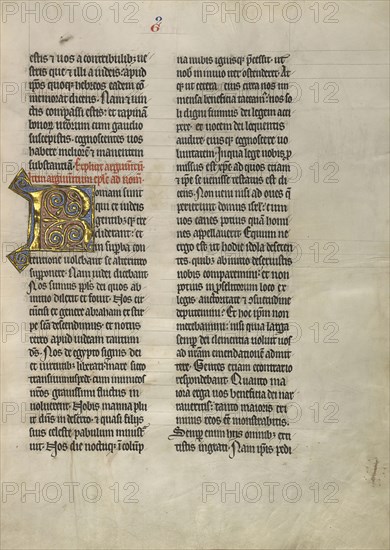 estis et uos a contribulibus ue
stris que et illi a iudeis: apud
ipsos quoque hebreos eadem com
memorat dicens. Nam et uin
ctis compassi estis: et rapinam
bonorum uestrorum cum gaudio
suscepistis. cognoscentes uos
habere meliorem et manentem
substantiam. Explicit argumentum
Romani sunt
qui ex iudeis
gentibusque cre
diderant: et
tim superba con
tentione uolebant se alterutro
superponere. Nam iudei dicebant.
Nos sumus populus dei quos ab
initio dilexit et fouit. Nos cir
cumcisi ex genere abraham ex stir
pe sancta descendimus: et notus
retro apud iudeam tantum
deus. Nos de egypto signis dei
et uirtutibus liberati: mare sic
co transiuimus pede: cum inimicos
nostros grauissimi fluctus in
uoluerent. Nobis manna plu
it dominus in deserto: et quasi filiis
suis celeste pabulum ministra
uit. Nos die noctuque in columpna
na nubis ignisque precessit. ut
nobis in inuio iter ostenderet. At
que ut cetera eius circa nos in
mensa beneficia taceam: nos so
li digni fuimus dei legem acci
pere. et uocem dei loquentis
audire. eiusque cognoscere uo
luntatem. In qua lege nobis pro
missus est christus: ad quos etiam
et ipse se uenisse testatus est di
cens. Non ueni nisi ad oues que
perierunt domus israel: cum
uos canes potius quam homi
nes appellauerit. Equum ne
ergo est ut hodie idola deseren
tes. quibus ab initio deseruistis
nobis comparemini: et non
potius in proselitorum locum ex
legis auctoritate et consuetudine
deputemini? Et hoc ipsum non
merebamini: nisi quia larga
semper dei clementia uoluit uos
ad nostram emendationem admit
tere. Gentes etiam econtrario
respondebant. Quanto ma
iora erga uos beneficia dei nar
raueritis: tanto maioris cri
minis reos esse monstrabitis.
Semper enim hiis omnibus exti
tistis ingrati. Nam ipsis pedi